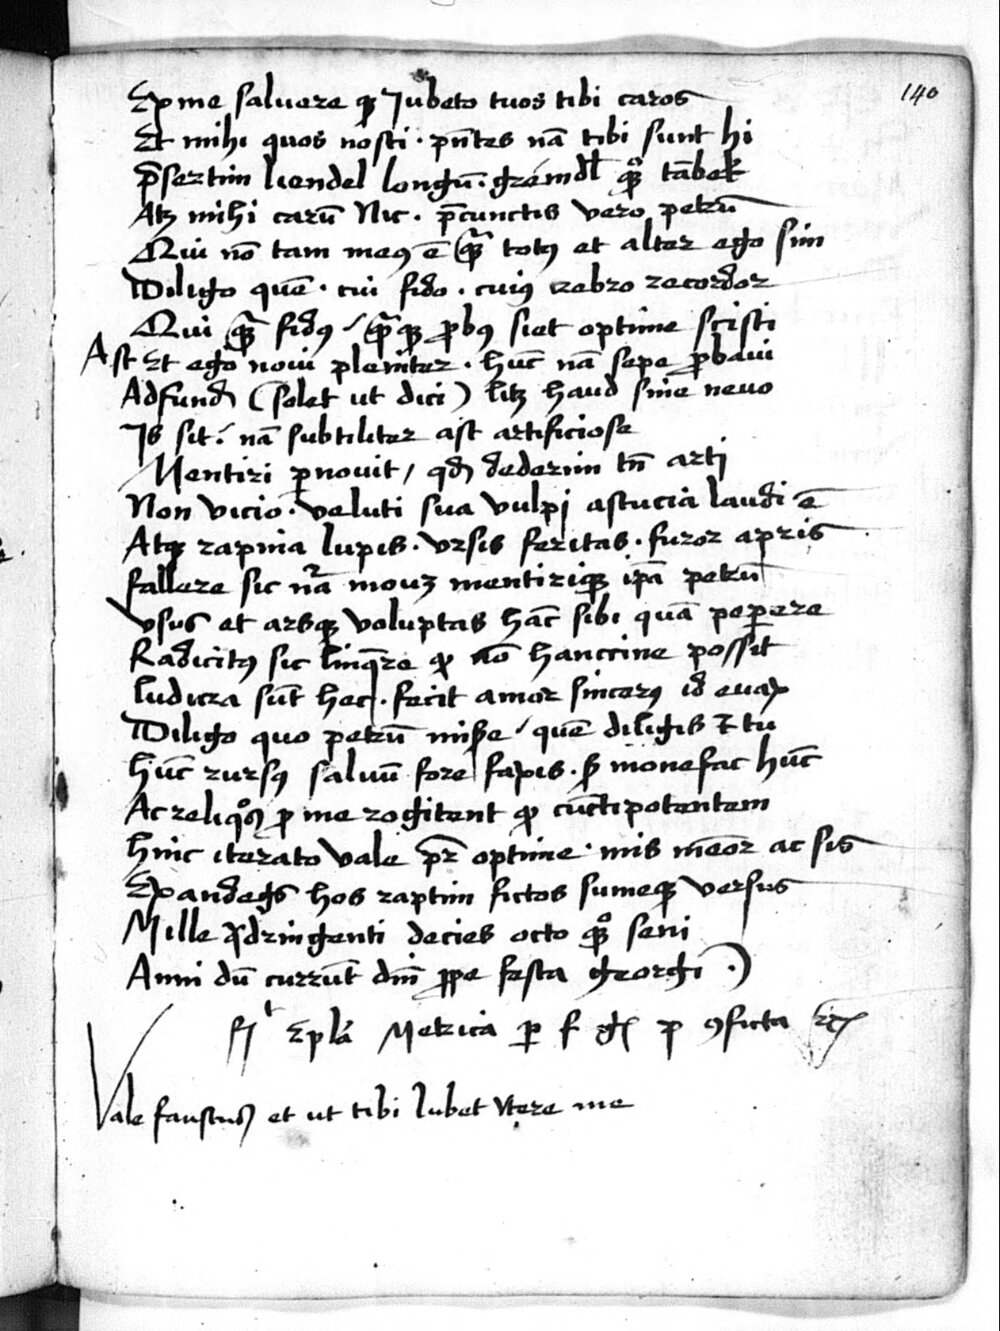 140
Ex me saluere qꝫ Jubeto tuos tibi caros
Et mihi quos nosti · pn̄tes nā tibi sunt hi
p̄sertim liendel longū · gremdl qꝫ tābek
Atqꝫ mihi carū Nic · p̄cunctis vero petrū
Qui nō tam meꝰ ē qꝫ totꝰ et alter ego sim
Diligo quē · cui fido · cuiꝰ crebro recordor
Qui qꝫ fidꝰ / qꝫ ꝓbꝰ siet optime scisti
Ast Et ego noui pleniter · hūc nā sepe ꝓbaui
Ad fund (solet ut dici) ltꝫ haud sine neuo
Is sit · nā subtiliter ast artificiose
Mentiri p̲nouit / qd dederim tn̄ arti
Non vicio · veluti sua vulpi astucia laudi ē
Atqꝫ rapina lupis · vrsis feritas · furor apris
fallere sic nr̄a mouꝫ mentiriqꝫ ip̄ā petrū
vsus et arsqꝫ voluptas hāc sibi quā pepere
Radicitꝰ sic linqꝫre ꝙ nō hanccine possit
ludicra sūt hec · fecit amor sincerꝰ id euax
Diligo quo petrū misse / quē diligis et tu
hūc rursꝰ saluū fore sapis · sꝫ monefac hūc
Ac reliqͦs ꝑ me rogitent ꝙ cūctipotentem
hinc iterato vale pr̄ optime · mis mēor ac sis
Ex andegs hos raptim fictos sumeqꝫ versus
Mille qͣdringenti decies octo qꝫ seni
Anni dū currūt dnī ꝓpe festa georgi ·)
fit Ep̄la Metrica ꝑ f p ꝯficta
Vale faustus et ut tibi lubet vtere me